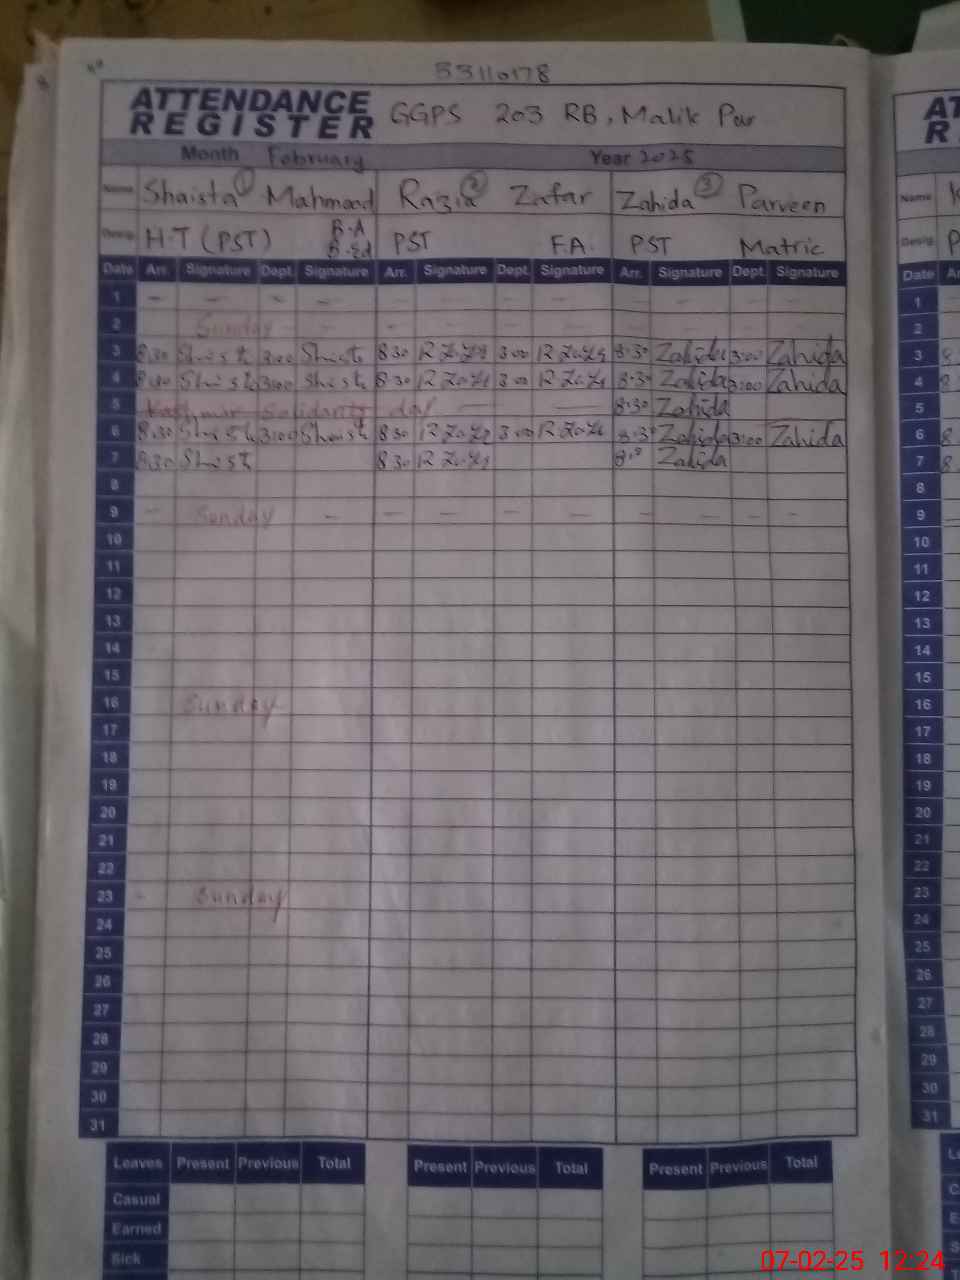 33110178
ATTENDANCE REGISTER GGPS 203 RB, Malik Pur
Month February Year 2025
Name Shaista ① Mahmood Razia ② Zafar Zahida ③ Parveen
Desig. H.T (PST) B.A B.Ed PST F.A. PST Matric
Date Arr. Signature Dept. Signature Arr. Signature Dept. Signature Arr. Signature Dept. Signature
1 - - - - - - - - - - -
2 Sunday - - - - - - - -
3 8.30 3:00 8 30 3 00 8:30 Zahida 3:00 Zahida
4 8.30 3:00 8 30 3 00 8:30 Zahida 3:00 Zahida
5 Kashmir Solidarity day - - 8:30 Zahida
6 8.30 3:00 8 30 3 00 8:30 Zahida 3:00 Zahida
7 8.30 8 30 Zahida
8
9 - Sunday - - - - - - - - -
10
11
12
13
14
15
16 Sunday
17
18
19
20
21
22
23 - Sunday
24
25
26
27
28
29
30
31
Leaves Present Previous Total Present Previous Total Present Previous Total
Casual
Earned
Sick
AT
R
Name
Desig. P
Date
1
2
3 8
4
5
6 8
7 8
8
9
10
11
12
13
14
15
16
17
18
19
20
21
22
23
24
25
26
27
28
29
30
31
07-02-25 12:24